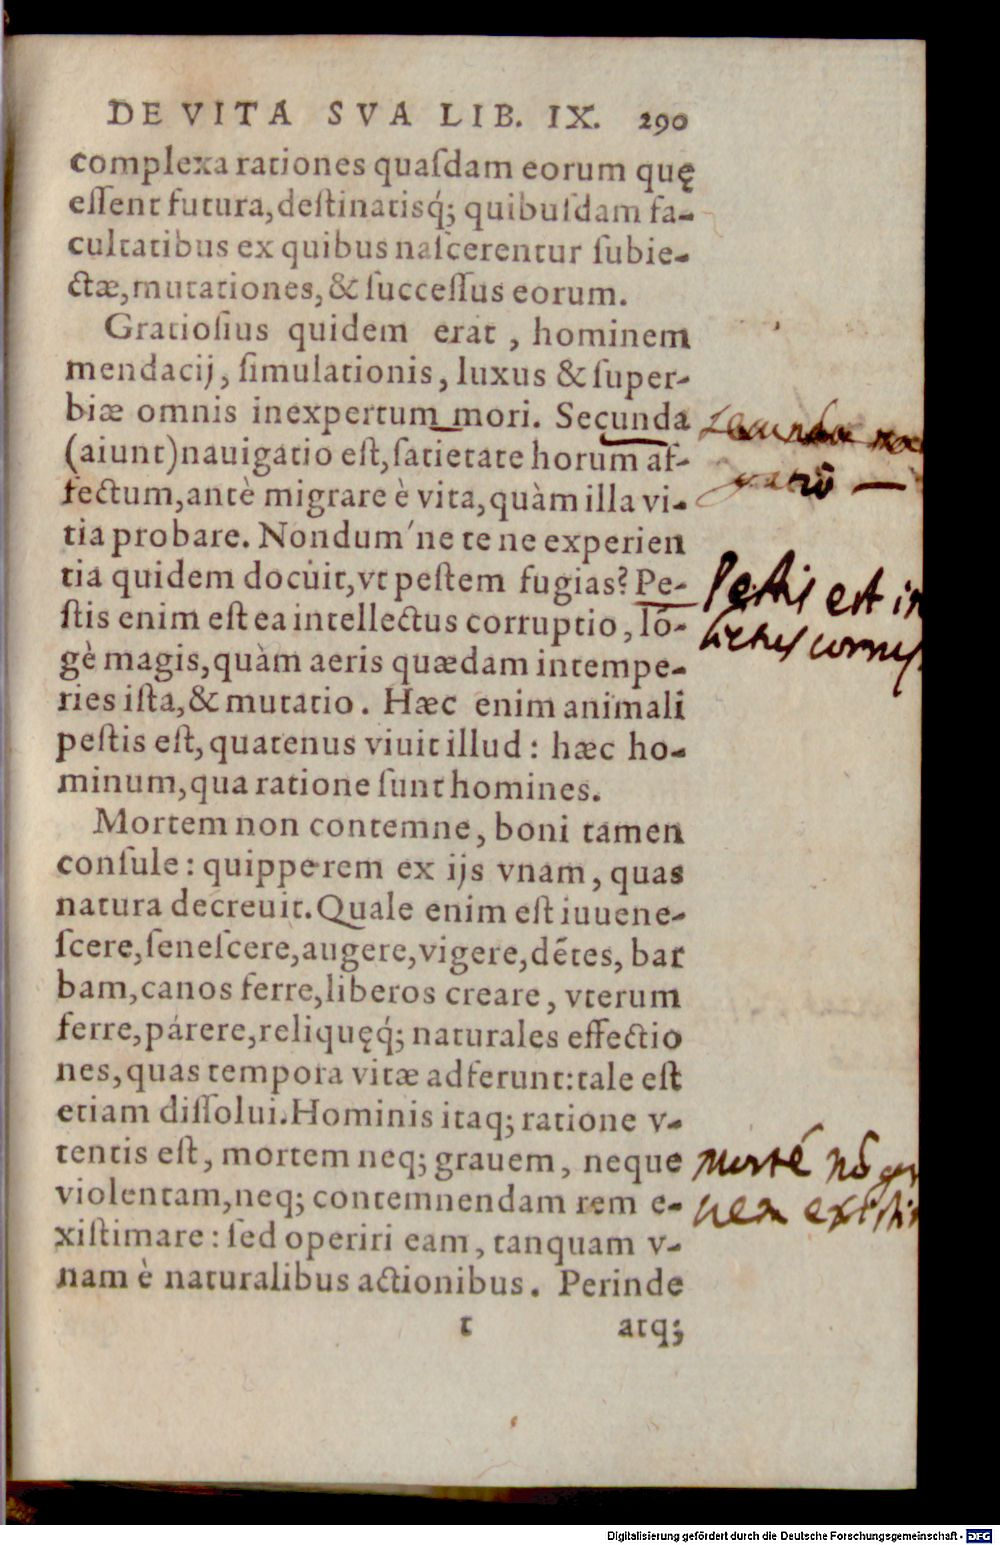 DE VITA SVA LIB. IX. 290
complexa rationes quaſdam eorum quę
eſſent futura, deſtinatisq́; quibuſdam fa-
cultatibus ex quibus naſcerentur ſubie-
ctæ, mutationes, & ſucceſſus eorum.
Gratioſius quidem erat, hominem
mendacij, ſimulationis, luxus & ſuper-
biæ omnis inexpertum mori. Secunda
(aiunt) nauigatio eſt, ſatietate horum af-
fectum, antè migrare è vita, quàm illa vi-
tia probare. Nondum'ne te ne experien
tia quidem docuit, vt peſtem fugias? Pe-
ſtis enim eſt ea intellectus corruptio, lõ-
gè magis, quàm aeris quædam intempe-
ries iſta, & mutatio. Hæc enim animali
peſtis eſt, quatenus viuit illud: hæc ho-
minum, qua ratione ſunt homines.
Mortem non contemne, boni tamen
conſule: quippe rem ex ijs vnam, quas
natura decreuit. Quale enim eſt iuuene-
ſcere, ſeneſcere, augere, vigere, dẽtes, bar
bam, canos ferre, liberos creare, vterum
ferre, párere, reliquęq́; naturales effectio
nes, quas tempora vitæ adferunt: tale eſt
etiam diſſolui. Hominis itaq; ratione v-
tentis eſt, mortem neq; grauem, neque
violentam, neq; contemnendam rem e-
xiſtimare: ſed operiri eam, tanquam v-
nam è naturalibus actionibus. Perinde
t atq;
Secunda na
Pestis est in
mortẽ nõ gra
Digitalisierung gefördert durch die Deutsche Forschungsgemeinschaft - DFG